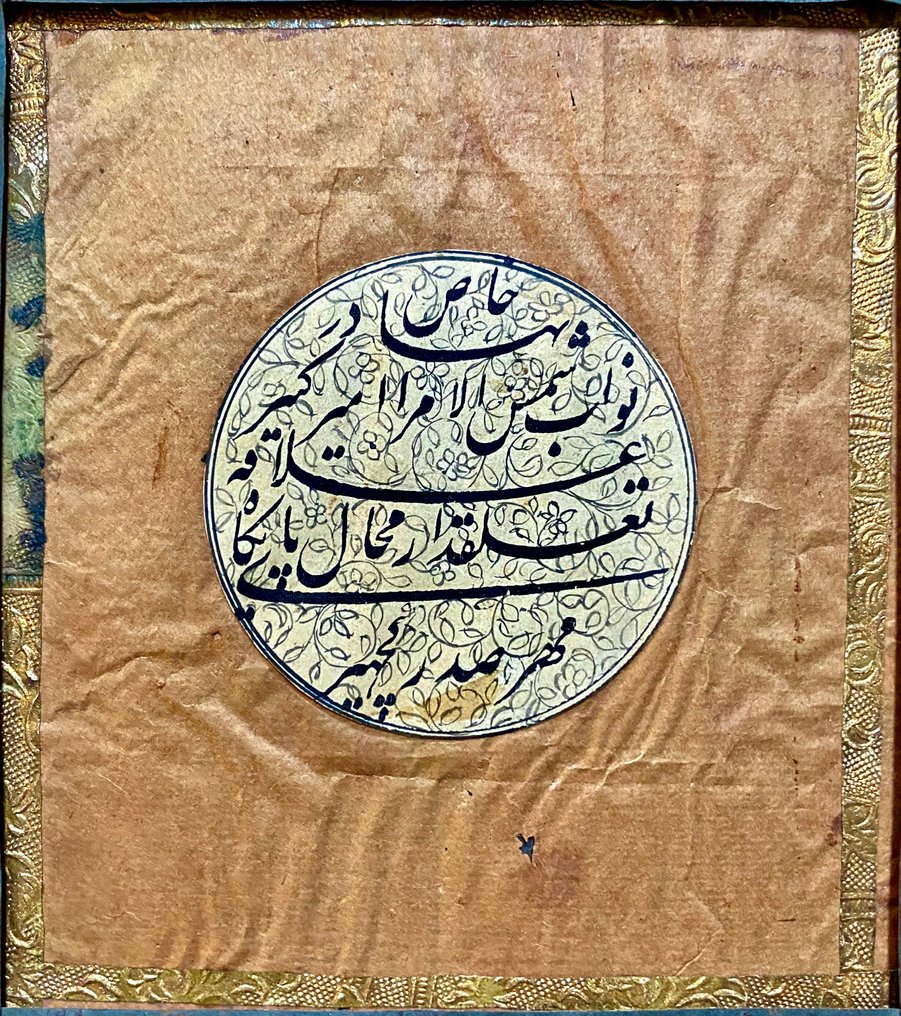 خاص
بهادر
نواب شمس الامرا امیر کبیر
علاقه
تعلقدار محال پایگاه
مهر صدر کچهیری